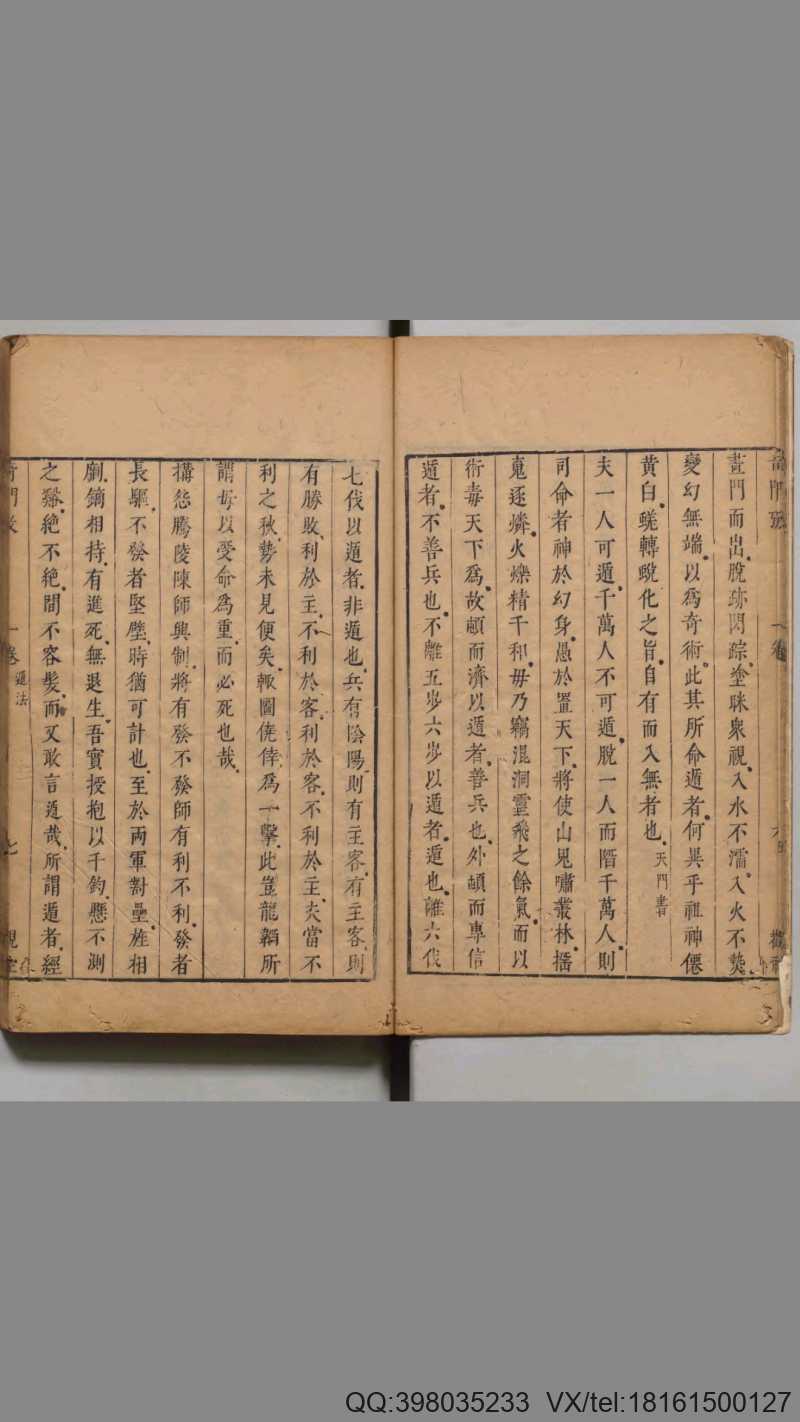 一卷
畫門而出脫跡閃踪塗眯衆視入水不濡入火不𦶟
變幻無端以爲奇術此其所命遁者何異乎祖神僊
黃白蜣轉蛻化之旨自有而入無者也天門書
夫一人可遁千萬人不可遁脫一人而陷千萬人則
司命者神於幻身愚於置天下將使山鬼嘯叢林播
䰟逐燐火爍精千和毋乃竊混洞靈飛之餘氣而以
術毒天下爲故頔而濟以遁者善兵也外頔而專信
遁者不善兵也不離五步六步以遁者遁也離六伐
七伐以遁者非遁也兵有陰陽則有主客有主客則
有勝敗利於主不利於客利於客不利於主夫當不
利之秋勢未見便矣輒圖僥倖爲一擊此豈龍韜所
謂毋以受命爲重而必死也哉
搆怨騰陵陳師興制將有發不發師有利不利發者
長驅不發者堅壁時猶可計也至於兩軍對壘旌相
劘鏑相持有進死無退生吾實授抱以千鈞懸不測
之谿絶不絶間不容髮而又敢言遁哉所謂遁者經
一卷 遁法
七
QQ:398035233 VX/tel:18161500127